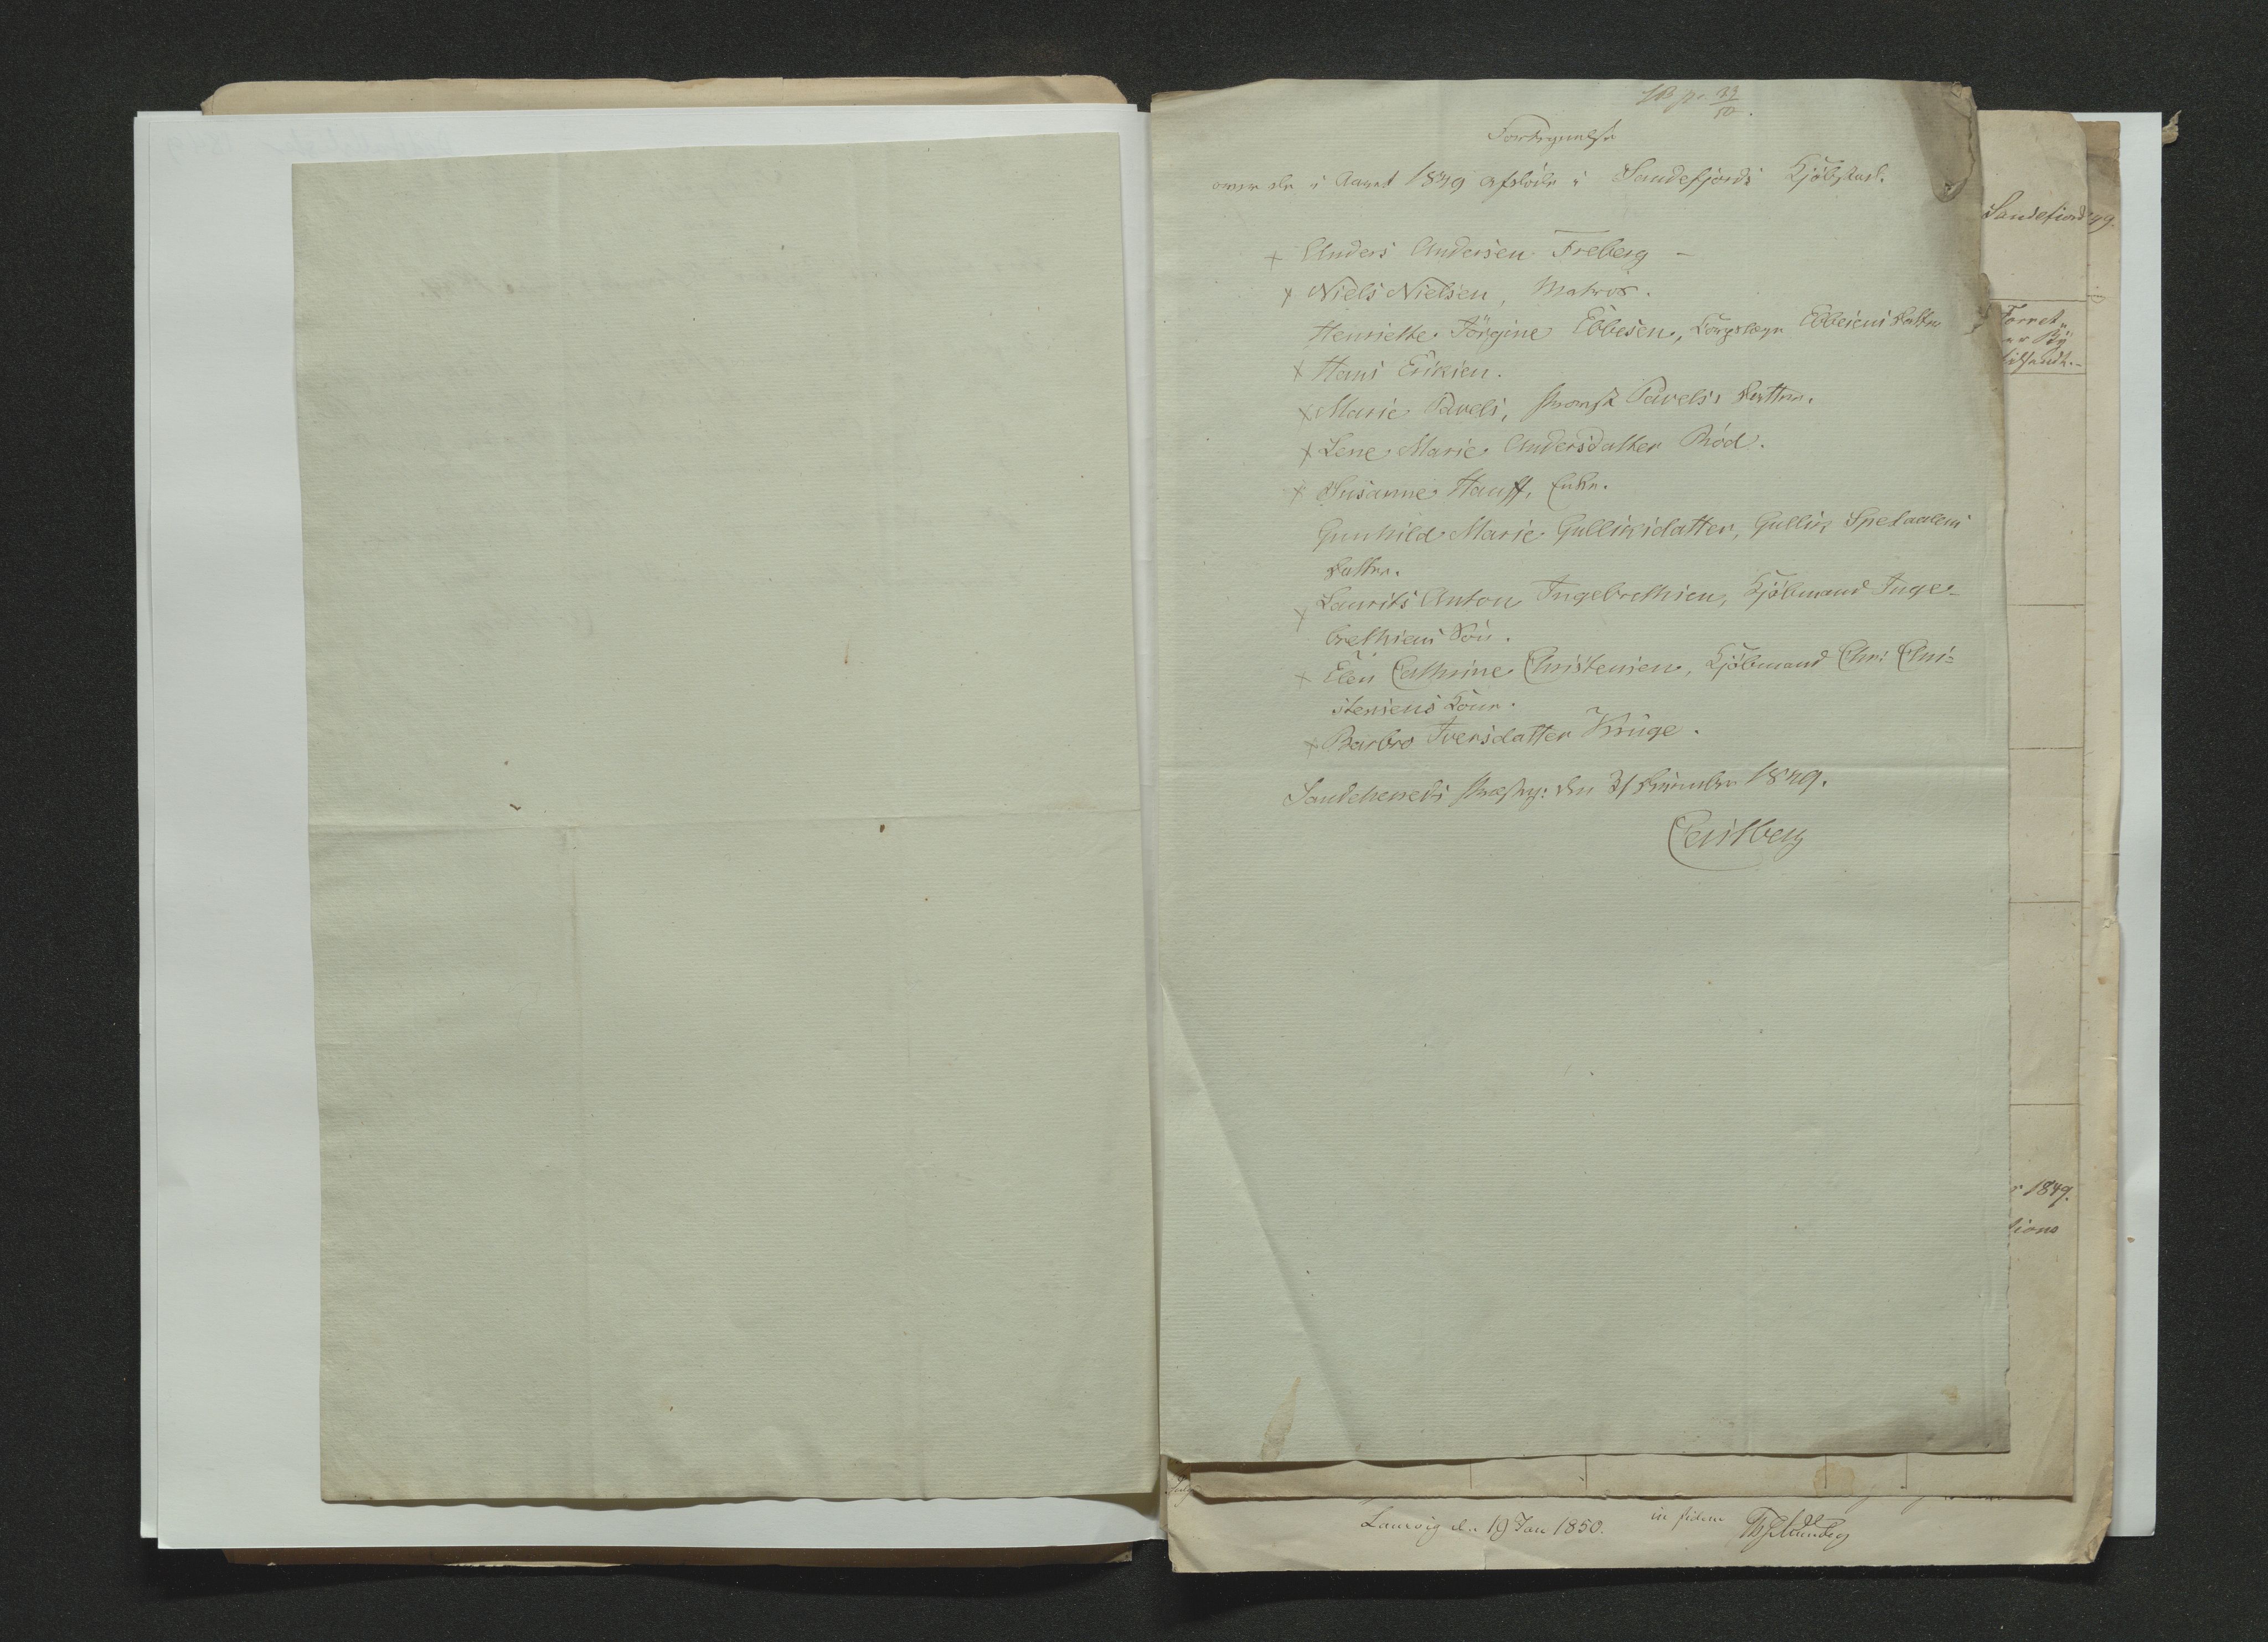 Fortegnelse
over de i Aaret 1849 afdøde i Sandefjords Kjöbstad.
+ Anders Andersen Freberg -
+ Niels Nielsen, Matros.
Henriette Jörgine Ebbesen, Ebbesens Datter
+ Hans Eriksen.
+ Marie Pavels, Provst Pavels's Datter.
+ Lene Marie Andersdatter Röd.
+ Susanne Hauff, Enke.
Gunhild Marie Gulliksdatter, Gullik Spetaalens
Datter.
+ Laurits Anton Ingebrethsen, Kjöbmand Inge-
brethsens Sön.
+ Elen Cathrine Christensen, Kjöbmand Chr: Chri-
stensens Kone.
+ Barbro Iversdatter Kruge.
Sandeherreds Præstg: den 31 December 1849.
Sandefiord 49.
Forret-
1849.
tions
Laurvig d. 19 Jan 1850. in fidem